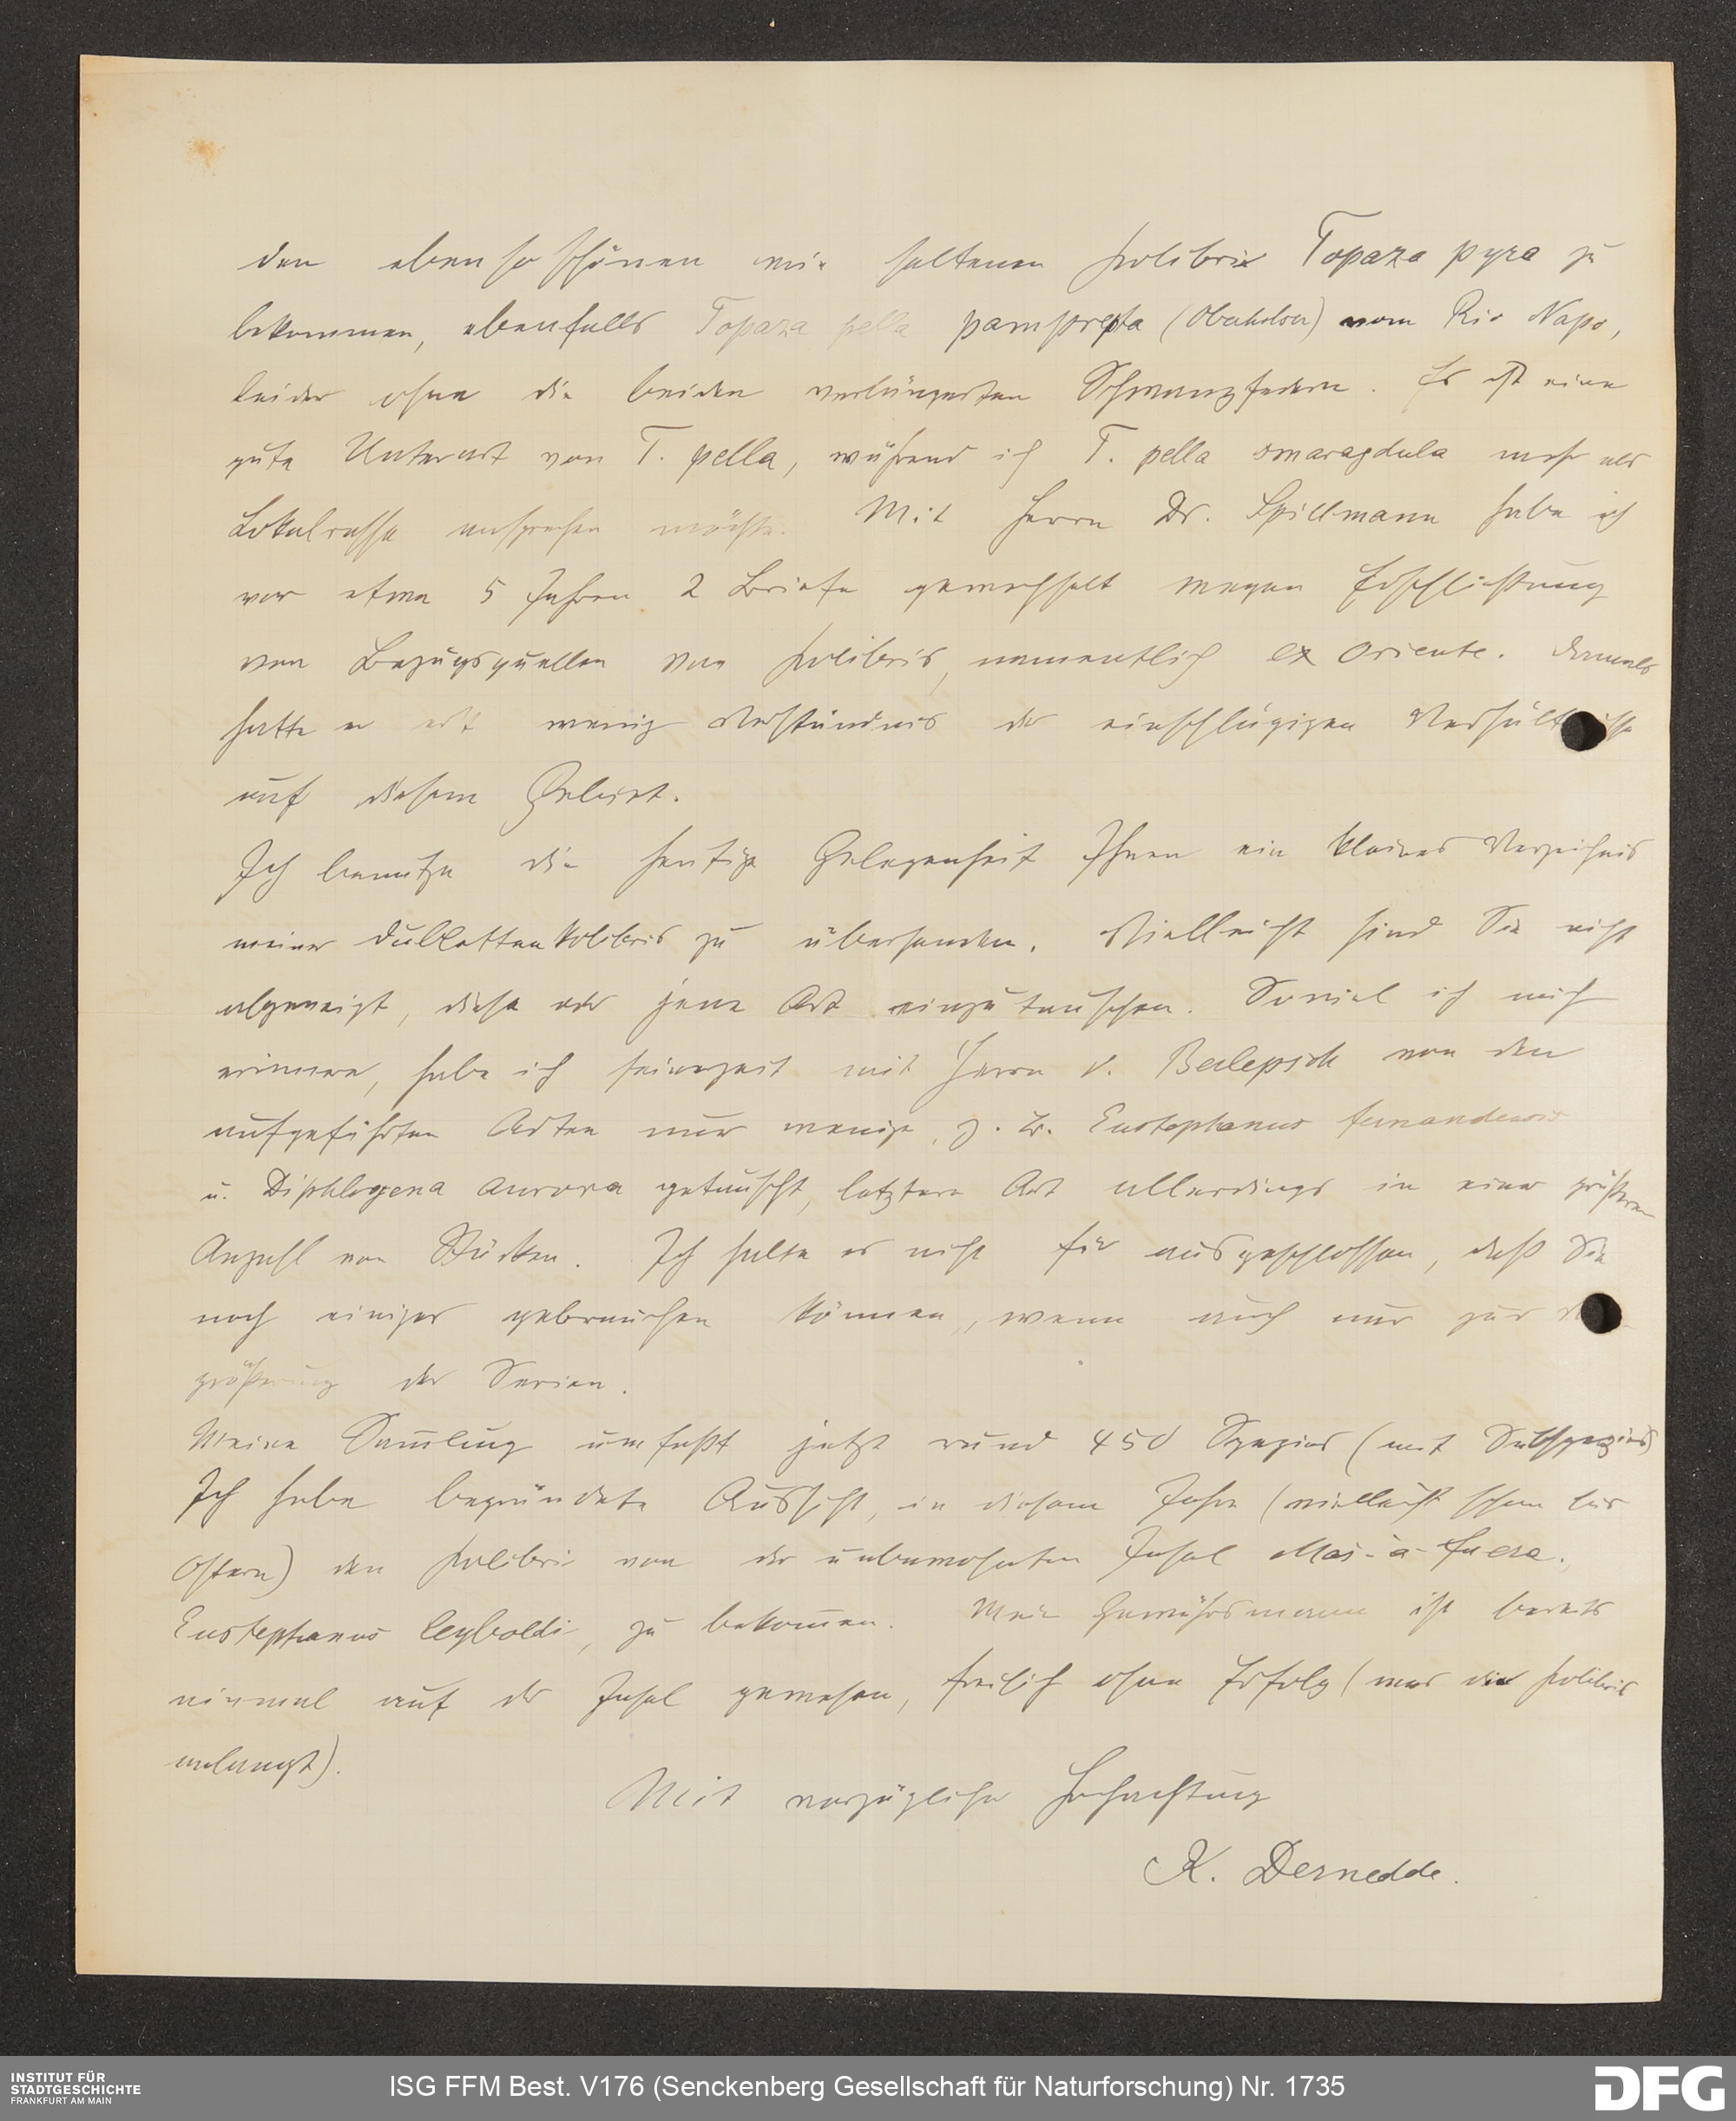 den ebenso schönen wie seltenen Kolibri Topaza pyra zu
bekommen, ebenfalls Topaza pella pamprepta (Oberholser) vom Rio Napo,
leider ohne die beiden verlängerten Schwanzfedern. Es ist eine
gute Unterart von T. pella, während ich T. pella smaragdula mehr als
Lokalrasse ansprechen möchte. Mit Herrn Dr. Spillmann habe ich
vor etwa 5 Jahren 2 Briefe gewechselt wegen Erschließung
von Bezugsquellen von Kolibris, namentlich ex Oriente. Damals
hatte er erst wenig Verständnis der einschlägigen Verhältnisse
auf diesem Gebiet.
Ich benutze die heutige Gelegenheit Ihnen ein kleines Verzeichnis
meiner Dublettenkolibris zu übersenden. Vielleicht sind Sie nicht
abgeneigt, diese oder jene Art einzutauschen. Soviel ich mich
erinnere, habe ich seinerzeit mit Herrn v. Berlepsch von den
aufgeführten Arten nur wenige, z. B. Eustephanus fernandensis
u. Diphlogena aurora getauscht, letztere Art allerdings in einer größeren
Anzahl von Stücken. Ich halte es nicht für ausgeschlossen, daß Sie
noch einiges gebrauchen können, wenn auch nur zur Ver-
größerung der Serien.
Meine Sammlung umfaßt jetzt rund 450 Spezies (mit Subspezies)
Ich habe begründete Aussicht, in diesem Jahre (vielleicht schon bis
Ostern) den Kolibri von der unbewohnten Insel Mas-a-fuera,
Eustephanus leyboldi, zu bekommen. Mein Gewährsmann ist bereits
einmal auf der Insel gewesen, freilich ohne Erfolg (was die Kolibris
anlangt).
Mit vorzüglicher Hochachtung
K. Dernedde.
INSTITUT FÜR
STADTGESCHICHTE
FRANKFURT AM MAIN
ISG FFM Best. V176 (Senckenberg Gesellschaft für Naturforschung) Nr. 1735
DFG